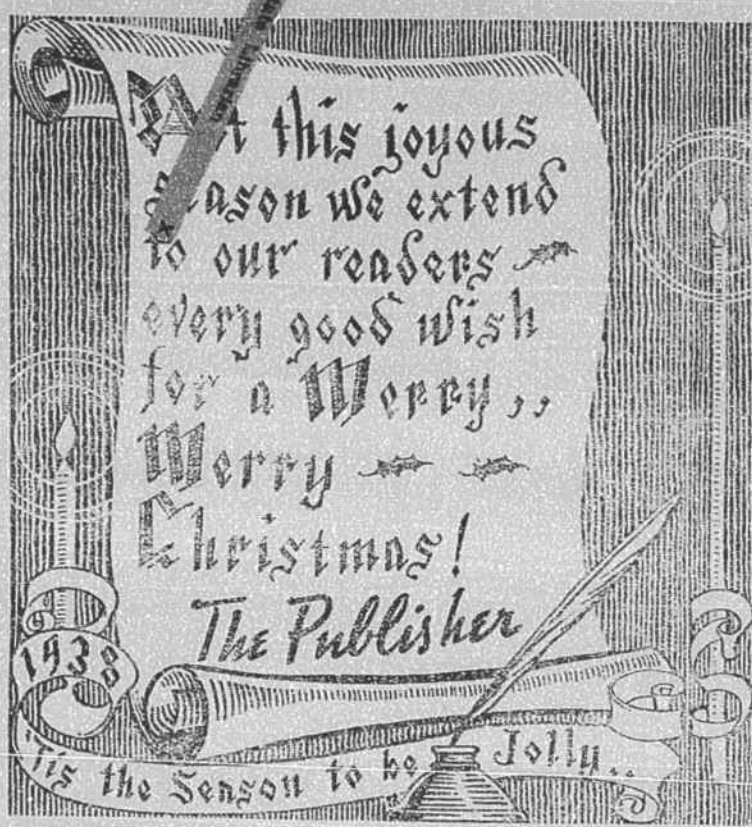 At this joyous
Season we extend
to our readers
every good wish
for a Merry,,
Merry
Christmas!
The Publisher
1938
'Tis the Season to be Jolly..